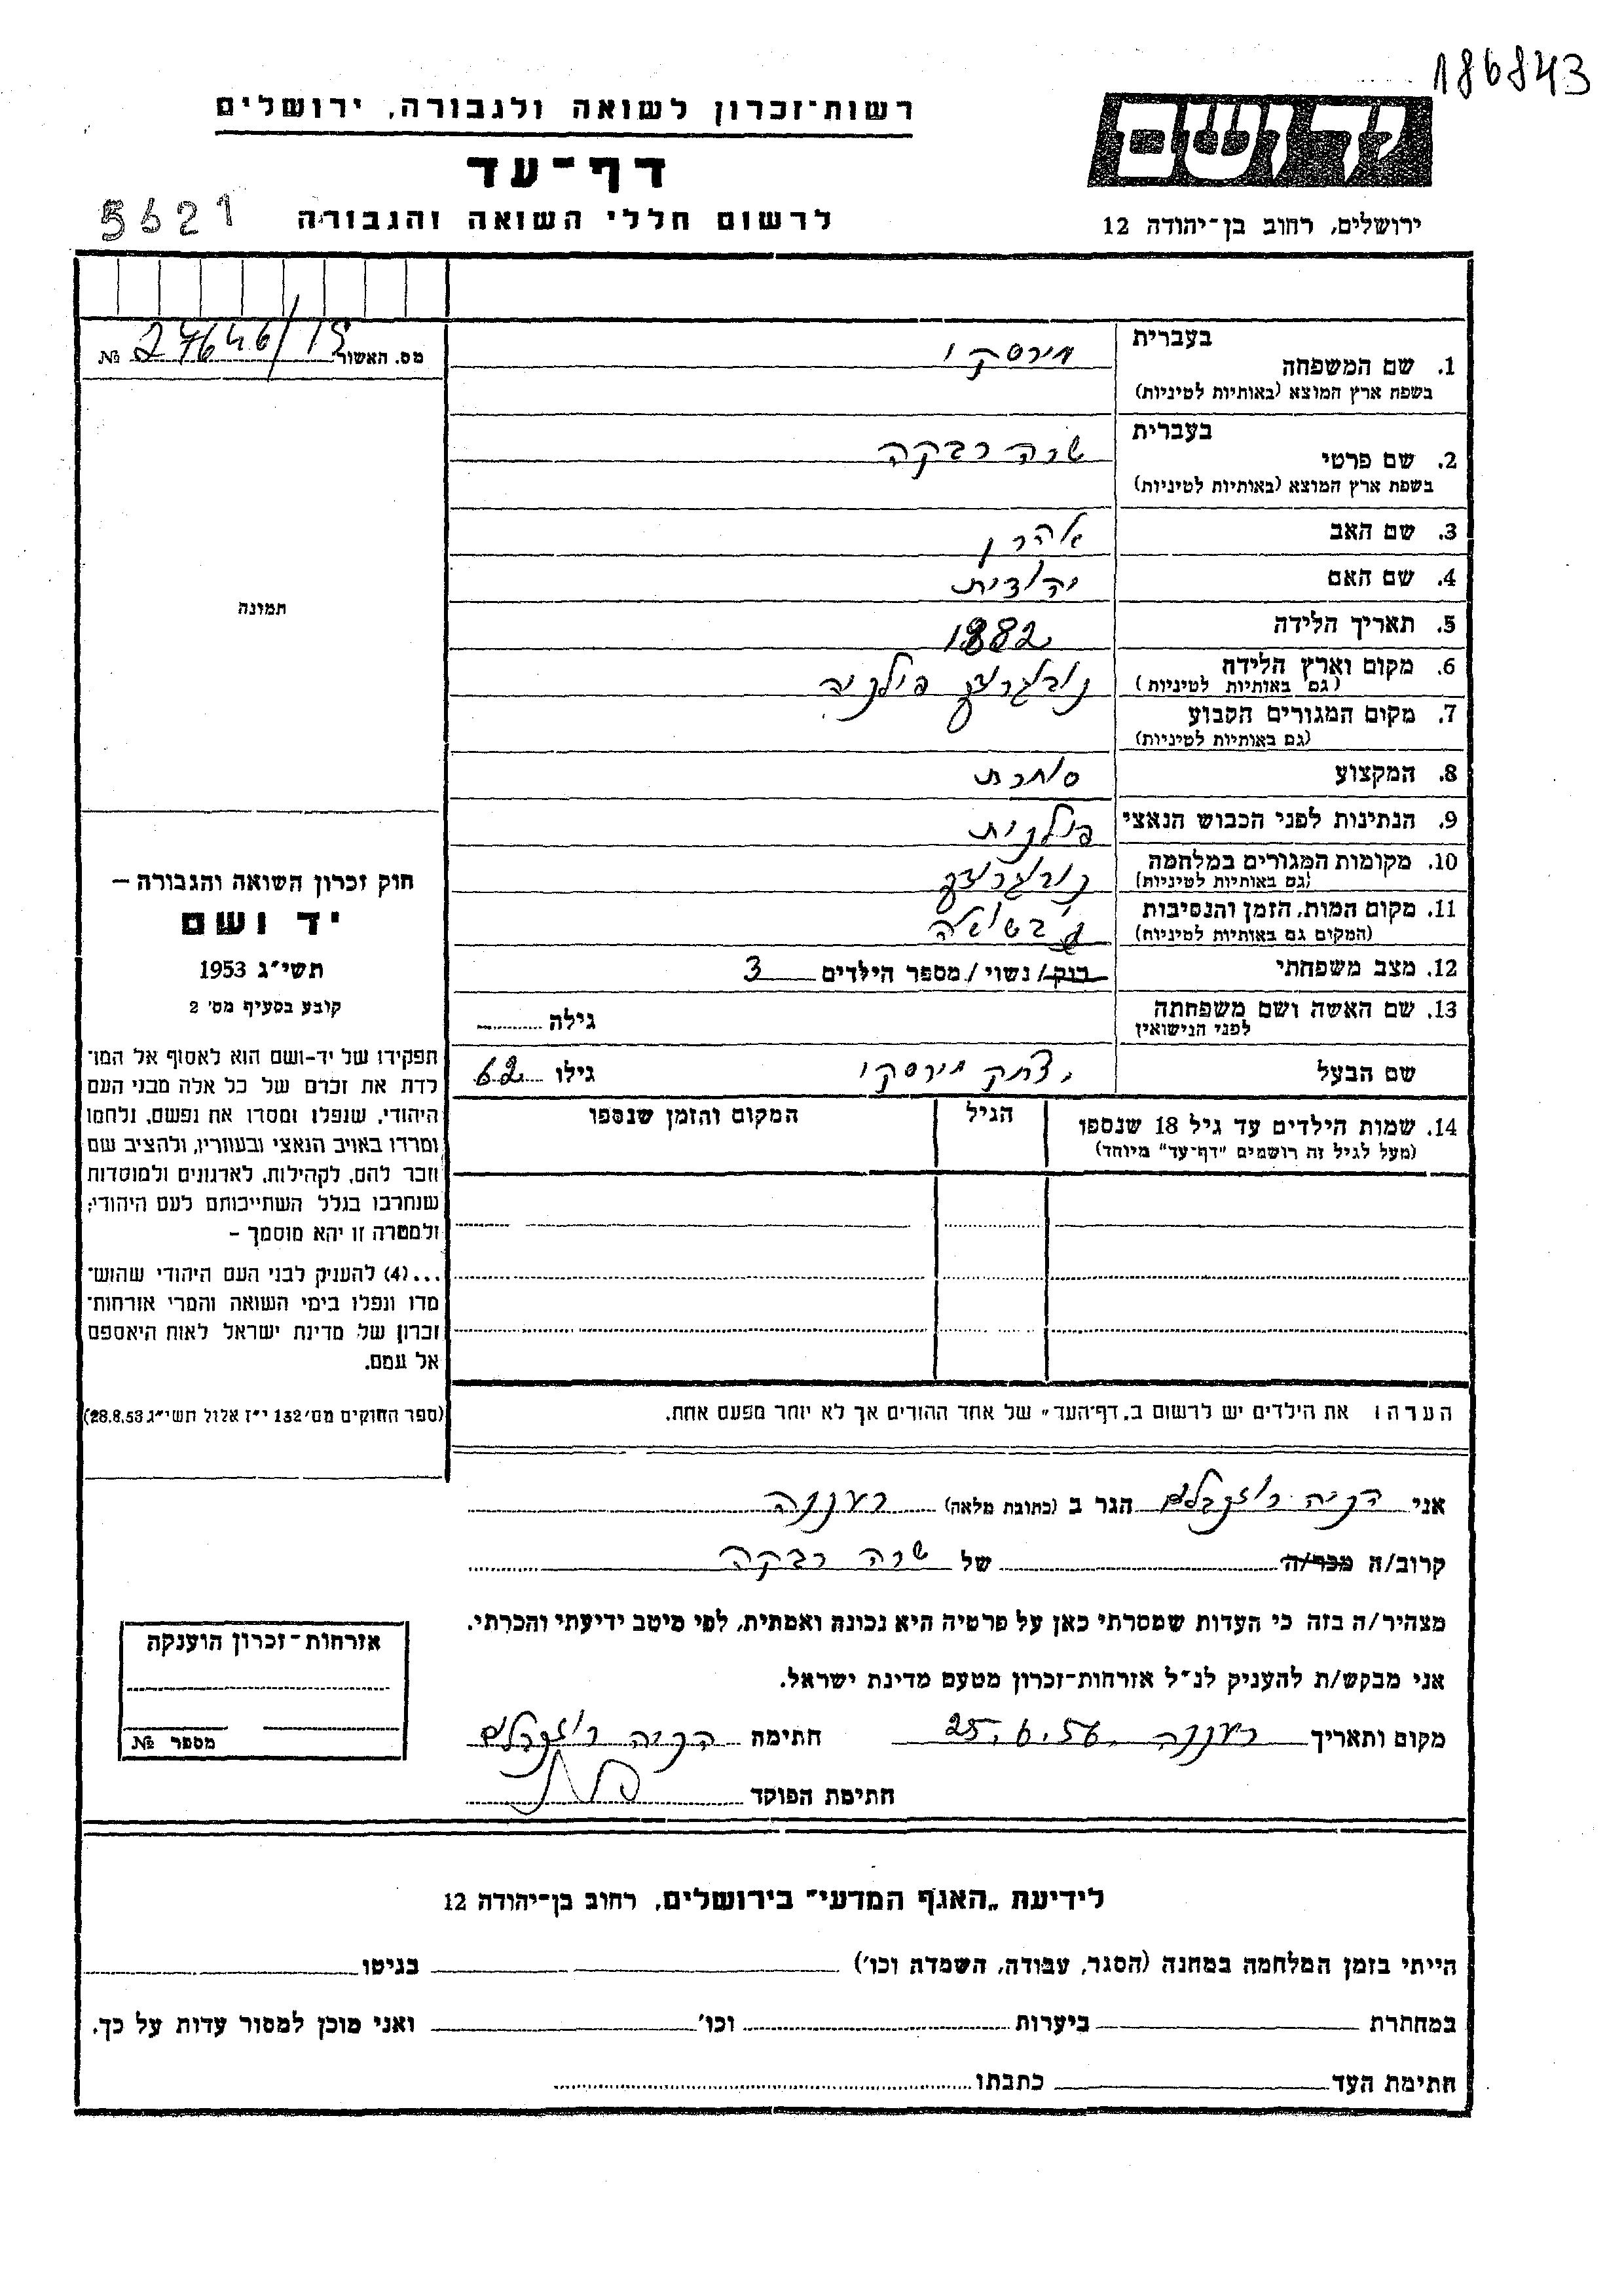 186843
רשות־זכרון לשואה ולגבורה, ירושלים
יד ושם
דף־עד
5621
לרשום חללי השואה והגבורה
ירושלים, רחוב בן־יהודה 12
מס. האשור 27646/19 №
בעברית
1. שם המשפחה מירסקי
בשפת ארץ המוצא (באותיות לטיניות)
בעברית
2. שם פרטי שרה רבקה
בשפת ארץ המוצא (באותיות לטיניות)
3. שם האב אהרן
4. שם האם יהודית
5. תאריך הלידה 1882
6. מקום וארץ הלידה פולניה
(גם באותיות לטיניות)
7. מקום המגורים הקבוע
(גם באותיות לטיניות)
8. המקצוע סוחרת
9. הנתינות לפני הכבוש הנאצי פולנית
10. מקומות המגורים במלחמה
(גם באותיות לטיניות)
11. מקום המות, הזמן והנסיבות
(המקום גם באותיות לטיניות)
12. מצב משפחתי רוק/ נשוי/ מספר הילדים 3
13. שם האשה ושם משפחתה
לפני הנישואין
גילה
שם הבעל יצחק מירסקי גילו 62
14. שמות הילדים עד גיל 18 שנספו
(מעל לגיל זה רושמים "דף־עד" מיוחד)
הגיל
המקום והזמן שנספו
הערה: את הילדים יש לרשום ב„דף־העד" של אחד ההורים אך לא יותר מפעם אחת.
תמונה
חוק זכרון השואה והגבורה –
יד ושם
תשי"ג 1953
קובע בסעיף מס' 2
תפקידו של יד-ושם הוא לאסוף אל המו־
לדת את זכרם של כל אלה מבני העם
היהודי, שנפלו ומסרו את נפשם, נלחמו
ומרדו באויב הנאצי ובעוזריו, ולהציב שם
וזכר להם, לקהילות, לארגונים ולמוסדות
שנחרבו בגלל השתייכותם לעם היהודי;
ולמטרה זו יהא מוסמך –
...(4) להעניק לבני העם היהודי שהוש־
מדו ונפלו בימי השואה והמרי אזרחות־
זכרון של מדינת ישראל לאות היאספם
אל עמם.
(ספר החוקים מס' 132 י"ז אלול תשי"ג 28.8.53)
אני הניה רוזנבלום הגר ב (כתובת מלאה) רעננה
קרוב/ה מכר/ה של שרה רבקה
מצהיר/ה בזה כי העדות שמסרתי כאן על פרטיה היא נכונה ואמתית, לפי מיטב ידיעתי והכרתי.
אני מבקש/ת להעניק לנ"ל אזרחות־זכרון מטעם מדינת ישראל.
מקום ותאריך רעננה 25.6.56 חתימה הניה רוזנבלום
חתימת הפוקד
אזרחות־זכרון הוענקה
מספר №
לידיעת „האגף המדעי" בירושלים, רחוב בן־יהודה 12
הייתי בזמן המלחמה במחנה (הסגר, עבודה, השמדה וכו') בגיטו
במחתרת ביערות וכו' ואני מוכן למסור עדות על כך.
חתימת העד כתבתו